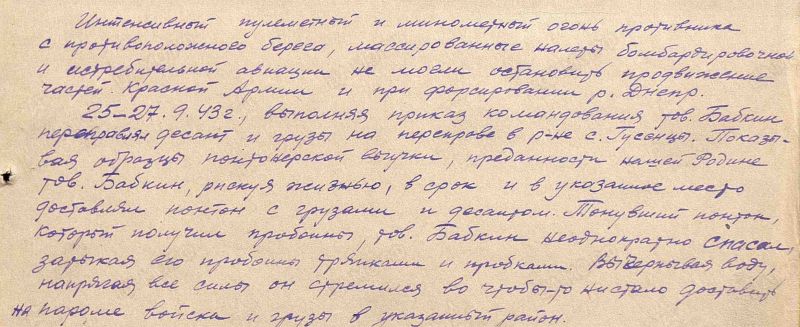 Интенсивный пулеметный и минометный огонь противника
с противоположного берега, массированные налеты бомбардировочной
и истребительной авиации не могли остановить продвижение
частей Красной Армии и при форсировании р. Днепр.
25–27.9.43г., выполняя приказ командования тов. Бабкин
переправлял десант и грузы на переправе в р-не с. Гусенцы. Показы-
вая образцы понтонерской выучки, преданности нашей Родине
тов. Бабкин, рискуя жизнью, в срок и в указанное место
доставлял понтон с грузами и десантом. Тонувший понтон,
который получил пробоины, тов. Бабкин неоднократно спасал,
затыкая его пробоины тряпками и пробками. Вычерпывая воду,
напрягая все силы он стремился во чтобы-то нистало доставить
на пароме войска и грузы в указанный район.